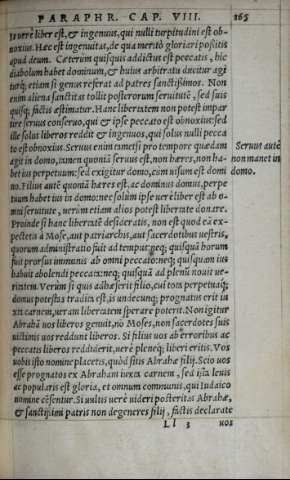 PARAPHR. CAP. VIII. 265
Is vere liber est, & ingenuus, qui nulli turpitudini est ob-
noxius. Hæc est ingenuitas, de qua meritò gloriari possitis
apud deum. Cæterum quisquis addictus est peccatis, hic
diabolum habet dominum, & huius arbitratu ducitur agi
turq́;, etiam si genus referat ad patres sanctissimos. Non
enim aliena sanctitas tollit posterorum seruitutē, sed suis
quisq; factis æstimatur. Hanc libertatem non potest impar
tire seruus conseruo, qui & ipse peccato est obnoxius: sed
ille solus liberos reddit & ingenuos, qui solus nulli pecca
to est obnoxius. Seruus enim tametsi pro tempore quædam
agit in domo, tamen quoniā seruus est, non hæres, non ha-
bet ius perpetuum: sed exigitur domo, cùm uisum est domi
no. Filius autē quoniā hæres est, ac dominus domus, perpe
tuum habet ius in domo: nec solùm ipse uerè liber est ab o-
mni seruitute, uerùm etiam alios potest libertate donare.
Proinde si hanc libertatē desideratis, non est quod eā ex-
pectetis à Mose, aut patriarchis, aut sacerdotibus uestris,
quorum administratio fuit ad tempus: neq; quisquā horum
fuit prorsus immunis ab omni peccato: neq; quisquam ius
habuit abolendi peccata: neq; quisquā ad plenū nouit ue-
ritatem. Verùm si quis adhæserit filio, cui tota perpetuaq́;
domus potestas tradita est, is undecunq; prognatus erit iu
xta carnem, ueram libertatem sperare poterit. Non igitur
Abrahā uos liberos genuit, nō Moses, non sacerdotes suis
uictimis uos reddunt liberos. Si filius uos ab erroribus ac
peccatis liberos reddiderit, uerè pleneq́; liberi eritis. Vos
uobis isto nomine placetis, quòd sitis Abrahæ filij. Scio uos
esse prognatos ex Abraham iuxta carnem, sed ista leuis
ac popularis est gloria, et omnium communis, qui Iudaico
nomine cēsentur. Si uultis uerè uideri posteritas Abrahæ,
& sanctissimi patris non degeneres filij, factis declarate
Ll 3 uos
Seruus autē
non manet in
domo.